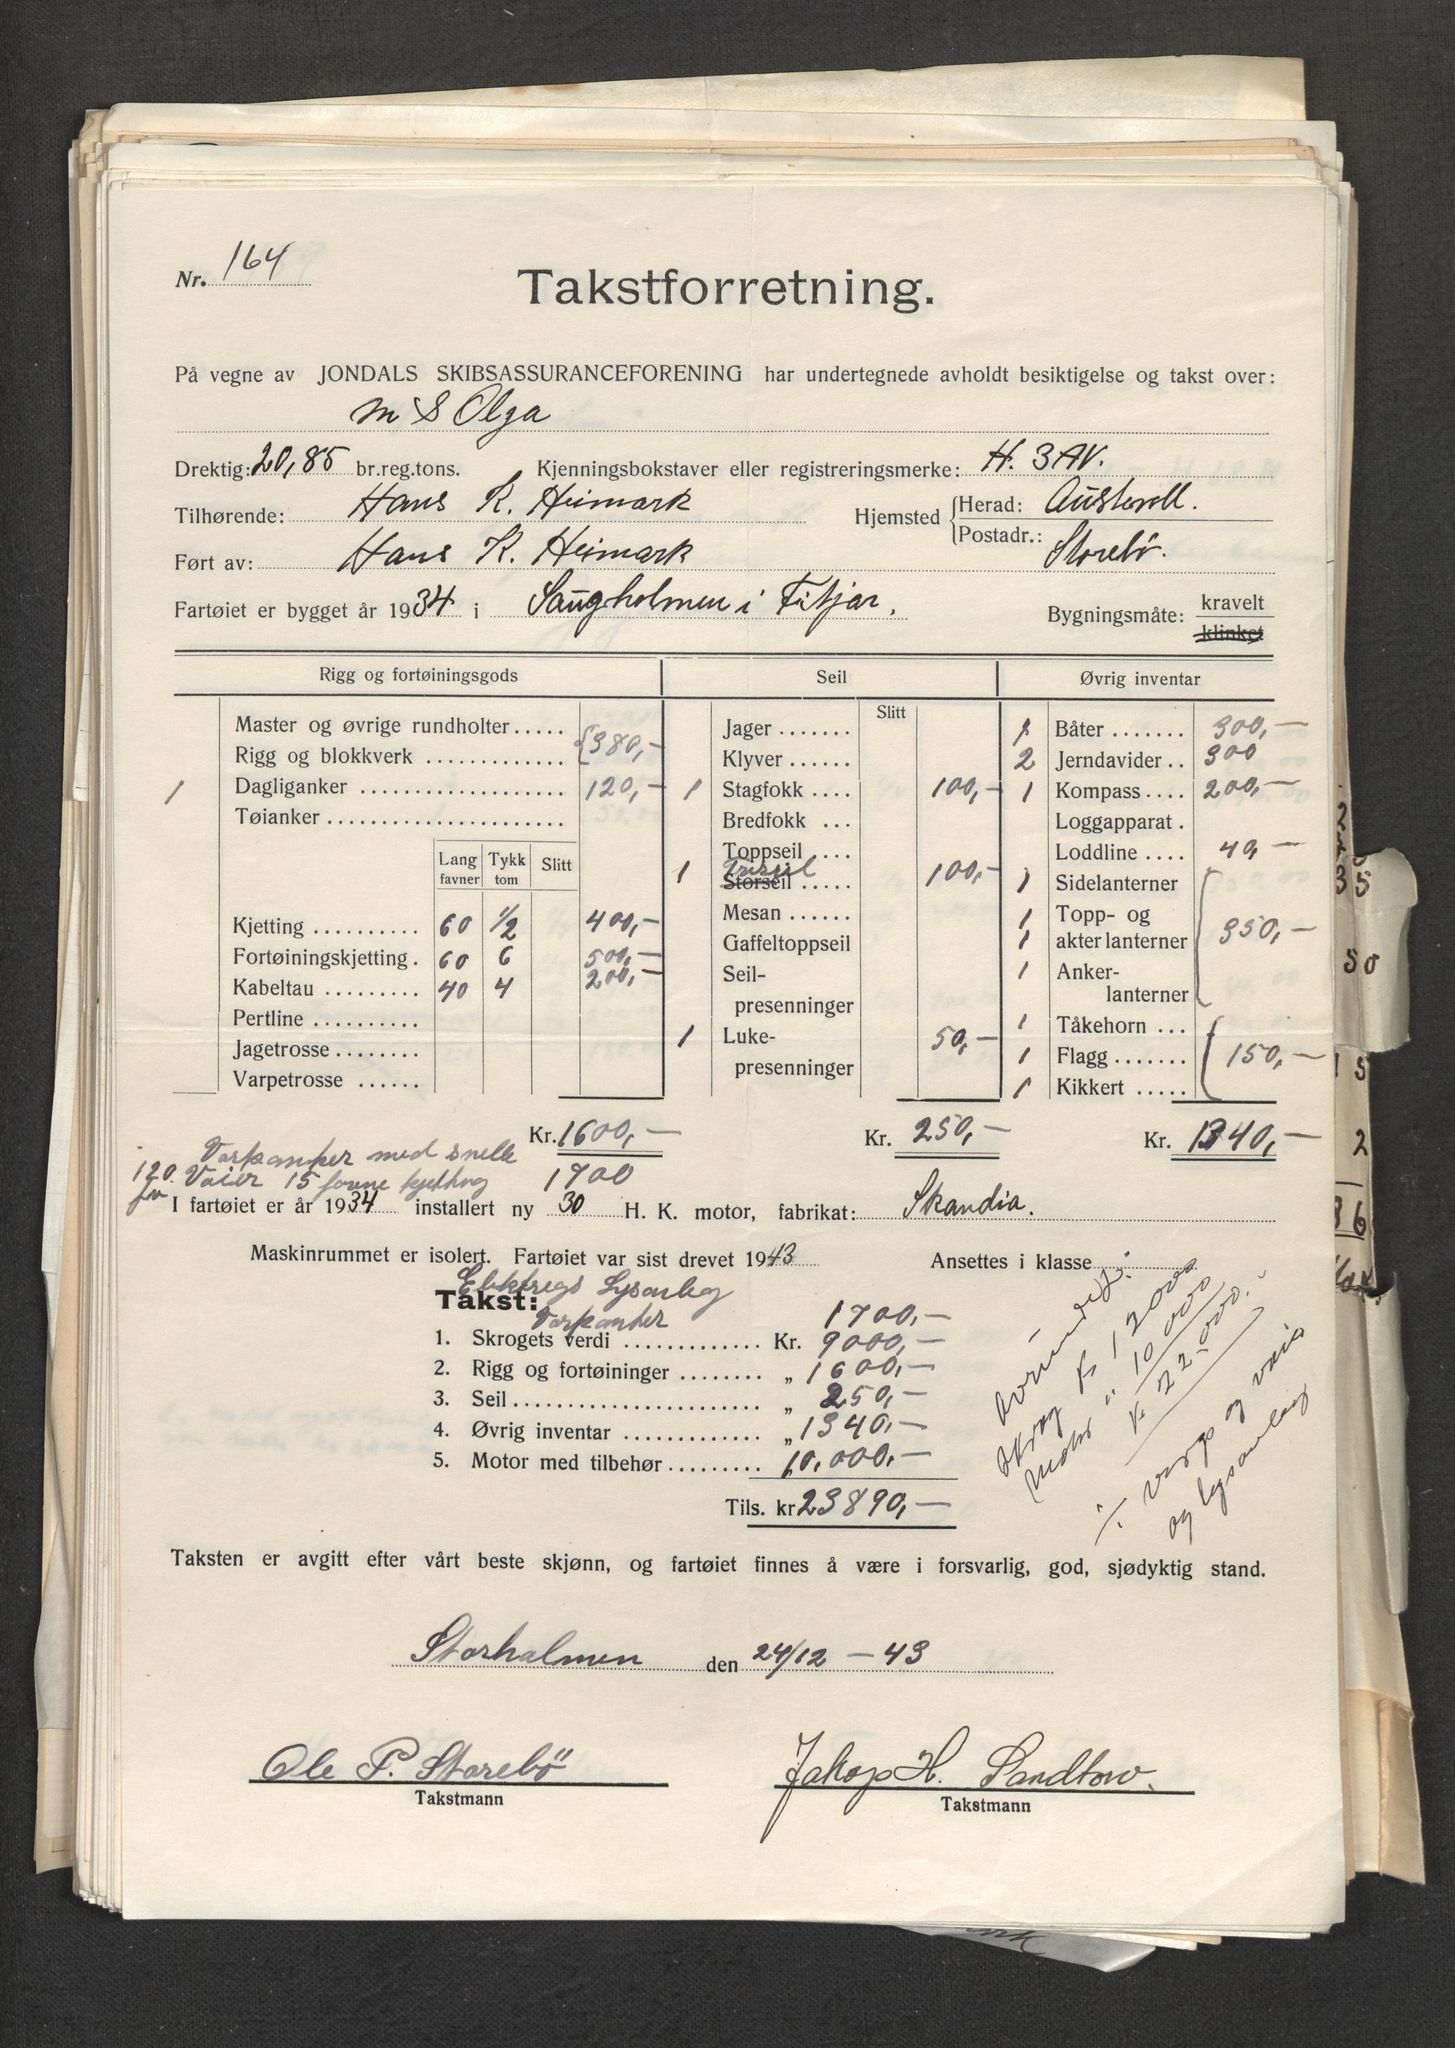 Nr. 164
Takstforretning.
På vegne av JONDALS SKIBSASSURANCEFORENING har undertegnede avholdt besiktigelse og takst over:
M S Olga
Drektig: 20,85 br.reg.tons. Kjenningsbokstaver eller registreringsmerke: H. 3 AV.
Tilhørende: Hans K. Heimark Hjemsted Herad: Austevoll.
Ført av: Hans K. Heimark Postadr.: Storebø.
Fartøiet er bygget år 1934 i Saugholmen i Fitjar. Bygningsmåte: kravelt
klinket
Rigg og fortøiningsgods
Master og øvrige rundholter
Rigg og blokkverk 380,—
1 Dagliganker 120,—
Tøianker
Lang favner Tykk tom Slitt
Kjetting 60 1/2 400,—
Fortøiningskjetting 60 6 500,—
Kabeltau 40 4 200,—
Pertline
Jagetrosse
Varpetrosse
Kr. 1600,—
Seil
Slitt
Jager
Klyver
1 Stagfokk 100,—
Bredfokk
Toppseil
Triseil
1 Storseil 100,—
Mesan
Gaffeltoppseil
Seil-
presenninger
1 Luke- 50,—
presenninger
Kr. 250,—
Øvrig inventar
1 Båter 300,—
2 Jerndavider 300
1 Kompass 200,—
Loggapparat
Loddline 40,—
1 Sidelanterner
1 Topp- og
1 akterlanterner 350,—
1 Anker-
lanterner
1 Tåkehorn
1 Flagg 150,—
1 Kikkert
Kr. 1340,—
Varpanker med snelle
120 fv Vaier 15 favne kjetting 1700
I fartøiet er år 1934 installert ny 30 H. K. motor, fabrikat: Skandia.
Maskinrummet er isolert. Fartøiet var sist drevet 1943 Ansettes i klasse
Elektregs Lysanleg
Takst:
Varpanker 1700,—
1. Skrogets verdi Kr. 9000,—
2. Rigg og fortøininger „ 1600,—
3. Seil „ 250,—
4. Øvrig inventar „ 1340,—
5. Motor med tilbehør 10,000,—
Tils. kr 23890,—
Avrundes:
Skrog kr 12000
Motor „ 10000
kr 22000.-
÷ varp og vaia
og lysanlæg
Taksten er avgitt efter vårt beste skjønn, og fartøiet finnes å være i forsvarlig, god, sjødyktig stand.
Storholmen den 24/12 — 43
Ole P. Storebö
Takstmann
Jakop H. Sandtorv.
Takstmann